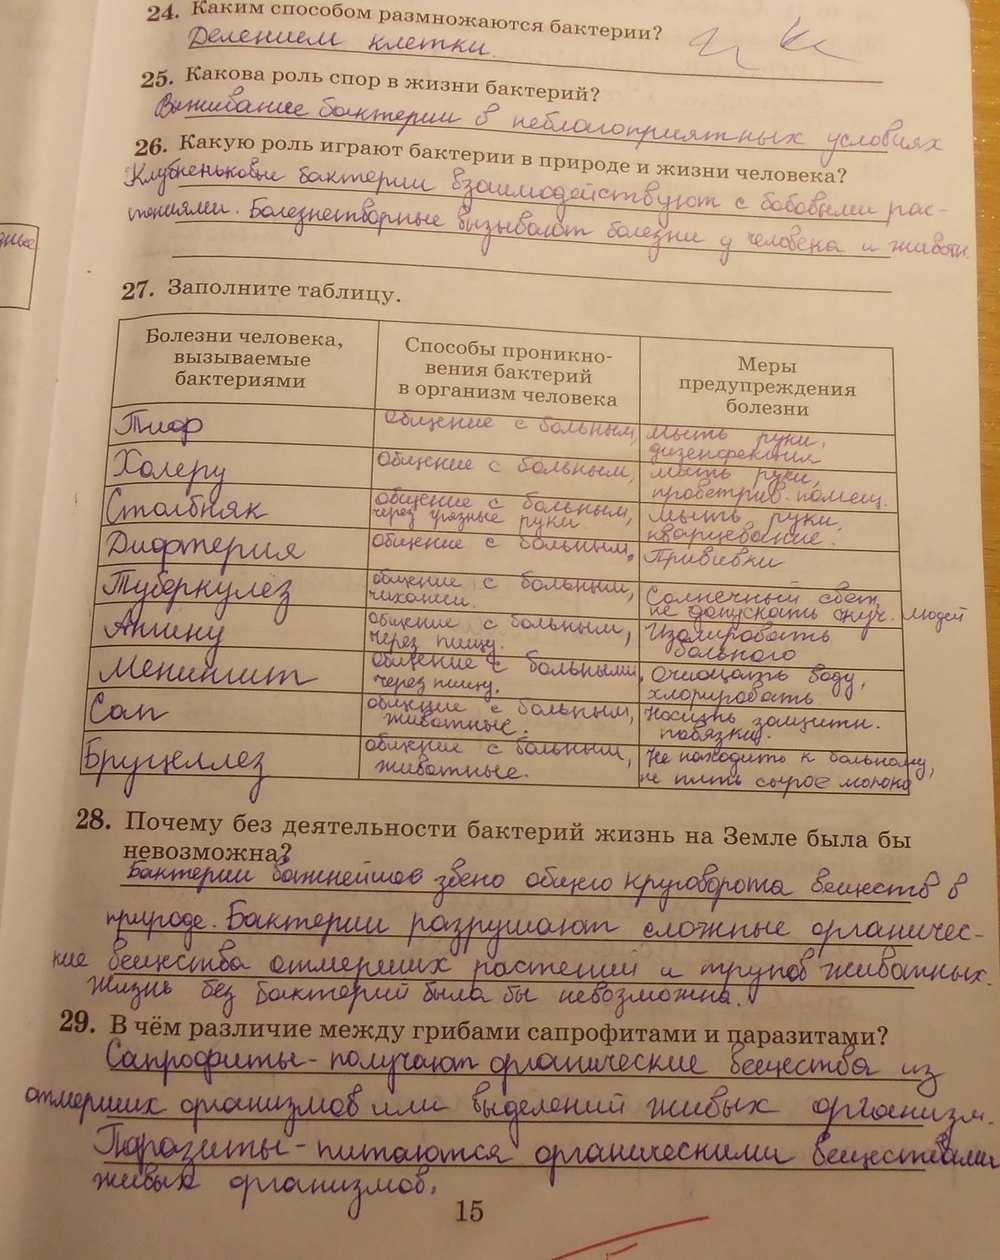 24. Каким способом размножаются бактерии?
Делением клетки.
25. Какова роль спор в жизни бактерий?
Выживание бактерии в неблагоприятных условиях
26. Какую роль играют бактерии в природе и жизни человека?
Клубеньковые бактерии взаимодействуют с бобовыми рас-
тениями. Болезнетворные вызывают болезни у человека и животн.
27. Заполните таблицу.
Болезни человека, вызываемые бактериями
Способы проникно-
вения бактерий
в организм человека
Меры
предупреждения
болезни
Тиф
общение с больным,
мыть руки,
дизенфекция
Холеру
общение с больным,
мыть руки,
проветрив. помещ.
Столбняк
общение с больным,
через грязные руки.
Мыть руки,
кварцевание.
Дифтерия
общение с больным.
Прививки
Туберкулёз
общение с больным,
чихании.
Солнечный свет,
не допускать скуч. людей
Ангину
общение с больным,
через пищу.
Изолировать
больного
Менингит
общение с больными,
через пищу.
Очищать воду,
хлорировать
Сап
общение с больным,
животные.
Носить защитн.
повязки.
Бруцеллез
общение с больным,
животные.
Не находить к больному,
не пить сырое молоко
28. Почему без деятельности бактерий жизнь на Земле была бы
невозможна?
Бактерии важнейшее звено общего круговорота веществ в
природе. Бактерии разрушают сложные органичес-
кие вещества отмерших растений и трупов животных.
Жизнь без бактерий была бы невозможна.
29. В чём различие между грибами сапрофитами и паразитами?
Сапрофиты - получают органические вещества из
отмерших организмов или выделений живых организм.
Паразиты - питаются органическими веществами
живых организмов.
15